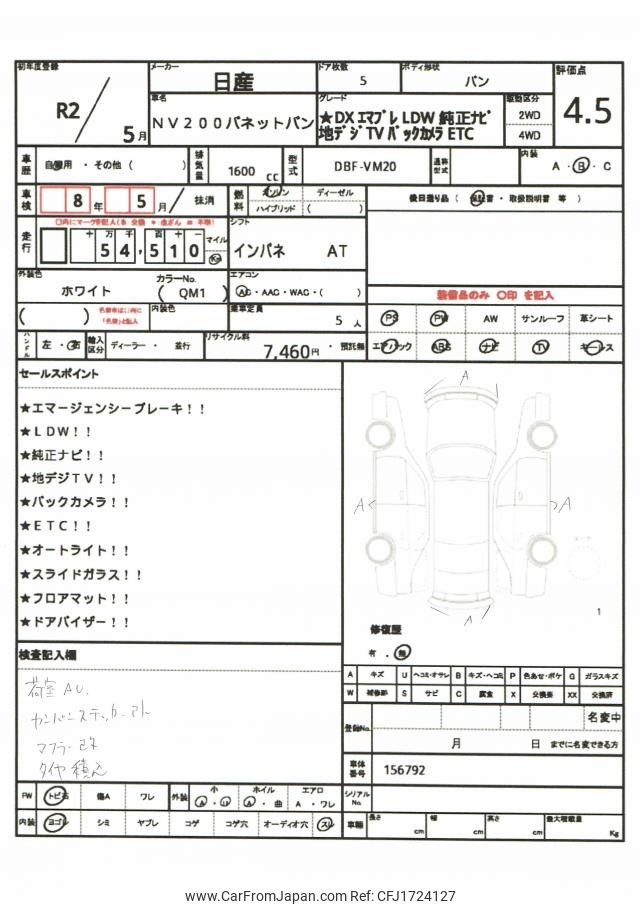 初年度登録
R2
5月
メーカー
日産
ドア枚数
5
ボディ形状
バン
評価点
4.5
車名
NV200バネットバン
グレード
★DX エマブレ LDW 純正ナビ
地デジ TV バックカメラ ETC
駆動区分
2WD
4WD
車歴
自家用・その他( )
排気量
1600 cc
型式
DBF-VM20
通称型式
内装
A・B・C
車検
8年 5月 抹消
燃料
ガソリン ディーゼル
ハイブリッド ( )
後日送り品( 保証書・取扱説明書 等 )
走行
十 万 千 百 十
54,510
マイル
Km
シフト
インパネ AT
外装色
ホワイト
カラーNo.
( QM1 )
エアコン
AC・AAC・WAC・( )
装備品のみ 〇印 を記入
( )
内装色
乗車定員
5人
PS PW AW サンルーフ 革シート
ハンドル
左・右
輸入区分
ディーラー・並行
リサイクル料
7,460円・預託無
エアバック ABS ナビ TV キーレス
セールスポイント
★エマージェンシーブレーキ!!
★LDW!!
★純正ナビ!!
★地デジTV!!
★バックカメラ!!
★ETC!!
★オートライト!!
★スライドガラス!!
★フロアマット!!
★ドアバイザー!!
A
A
A
A
1
修復歴
有・無
検査記入欄
荷室AU.
マフラー
タイヤ積込
A キズ U ヘコミ・オサレ B キズ・ヘコミ P 色あせ・ボケ G ガラスキズ
W 補修跡 S サビ C 腐食 X 交換要 XX 交換済
登録No.
名変中
月 日 までに名変できる方
車体番号
156792
FW トビ石 傷A ワレ 外装 小 A・U ホイル A・曲 エアロ A・ワレ
シリアルNo.
内装 ヨゴレ シミ ヤブレ コゲ コゲ穴 オーディオ穴 スレ
車輌 長さ cm 幅 cm 高さ cm 最大積載量 Kg
www.CarFromJapan.com Ref: CFJ1724127